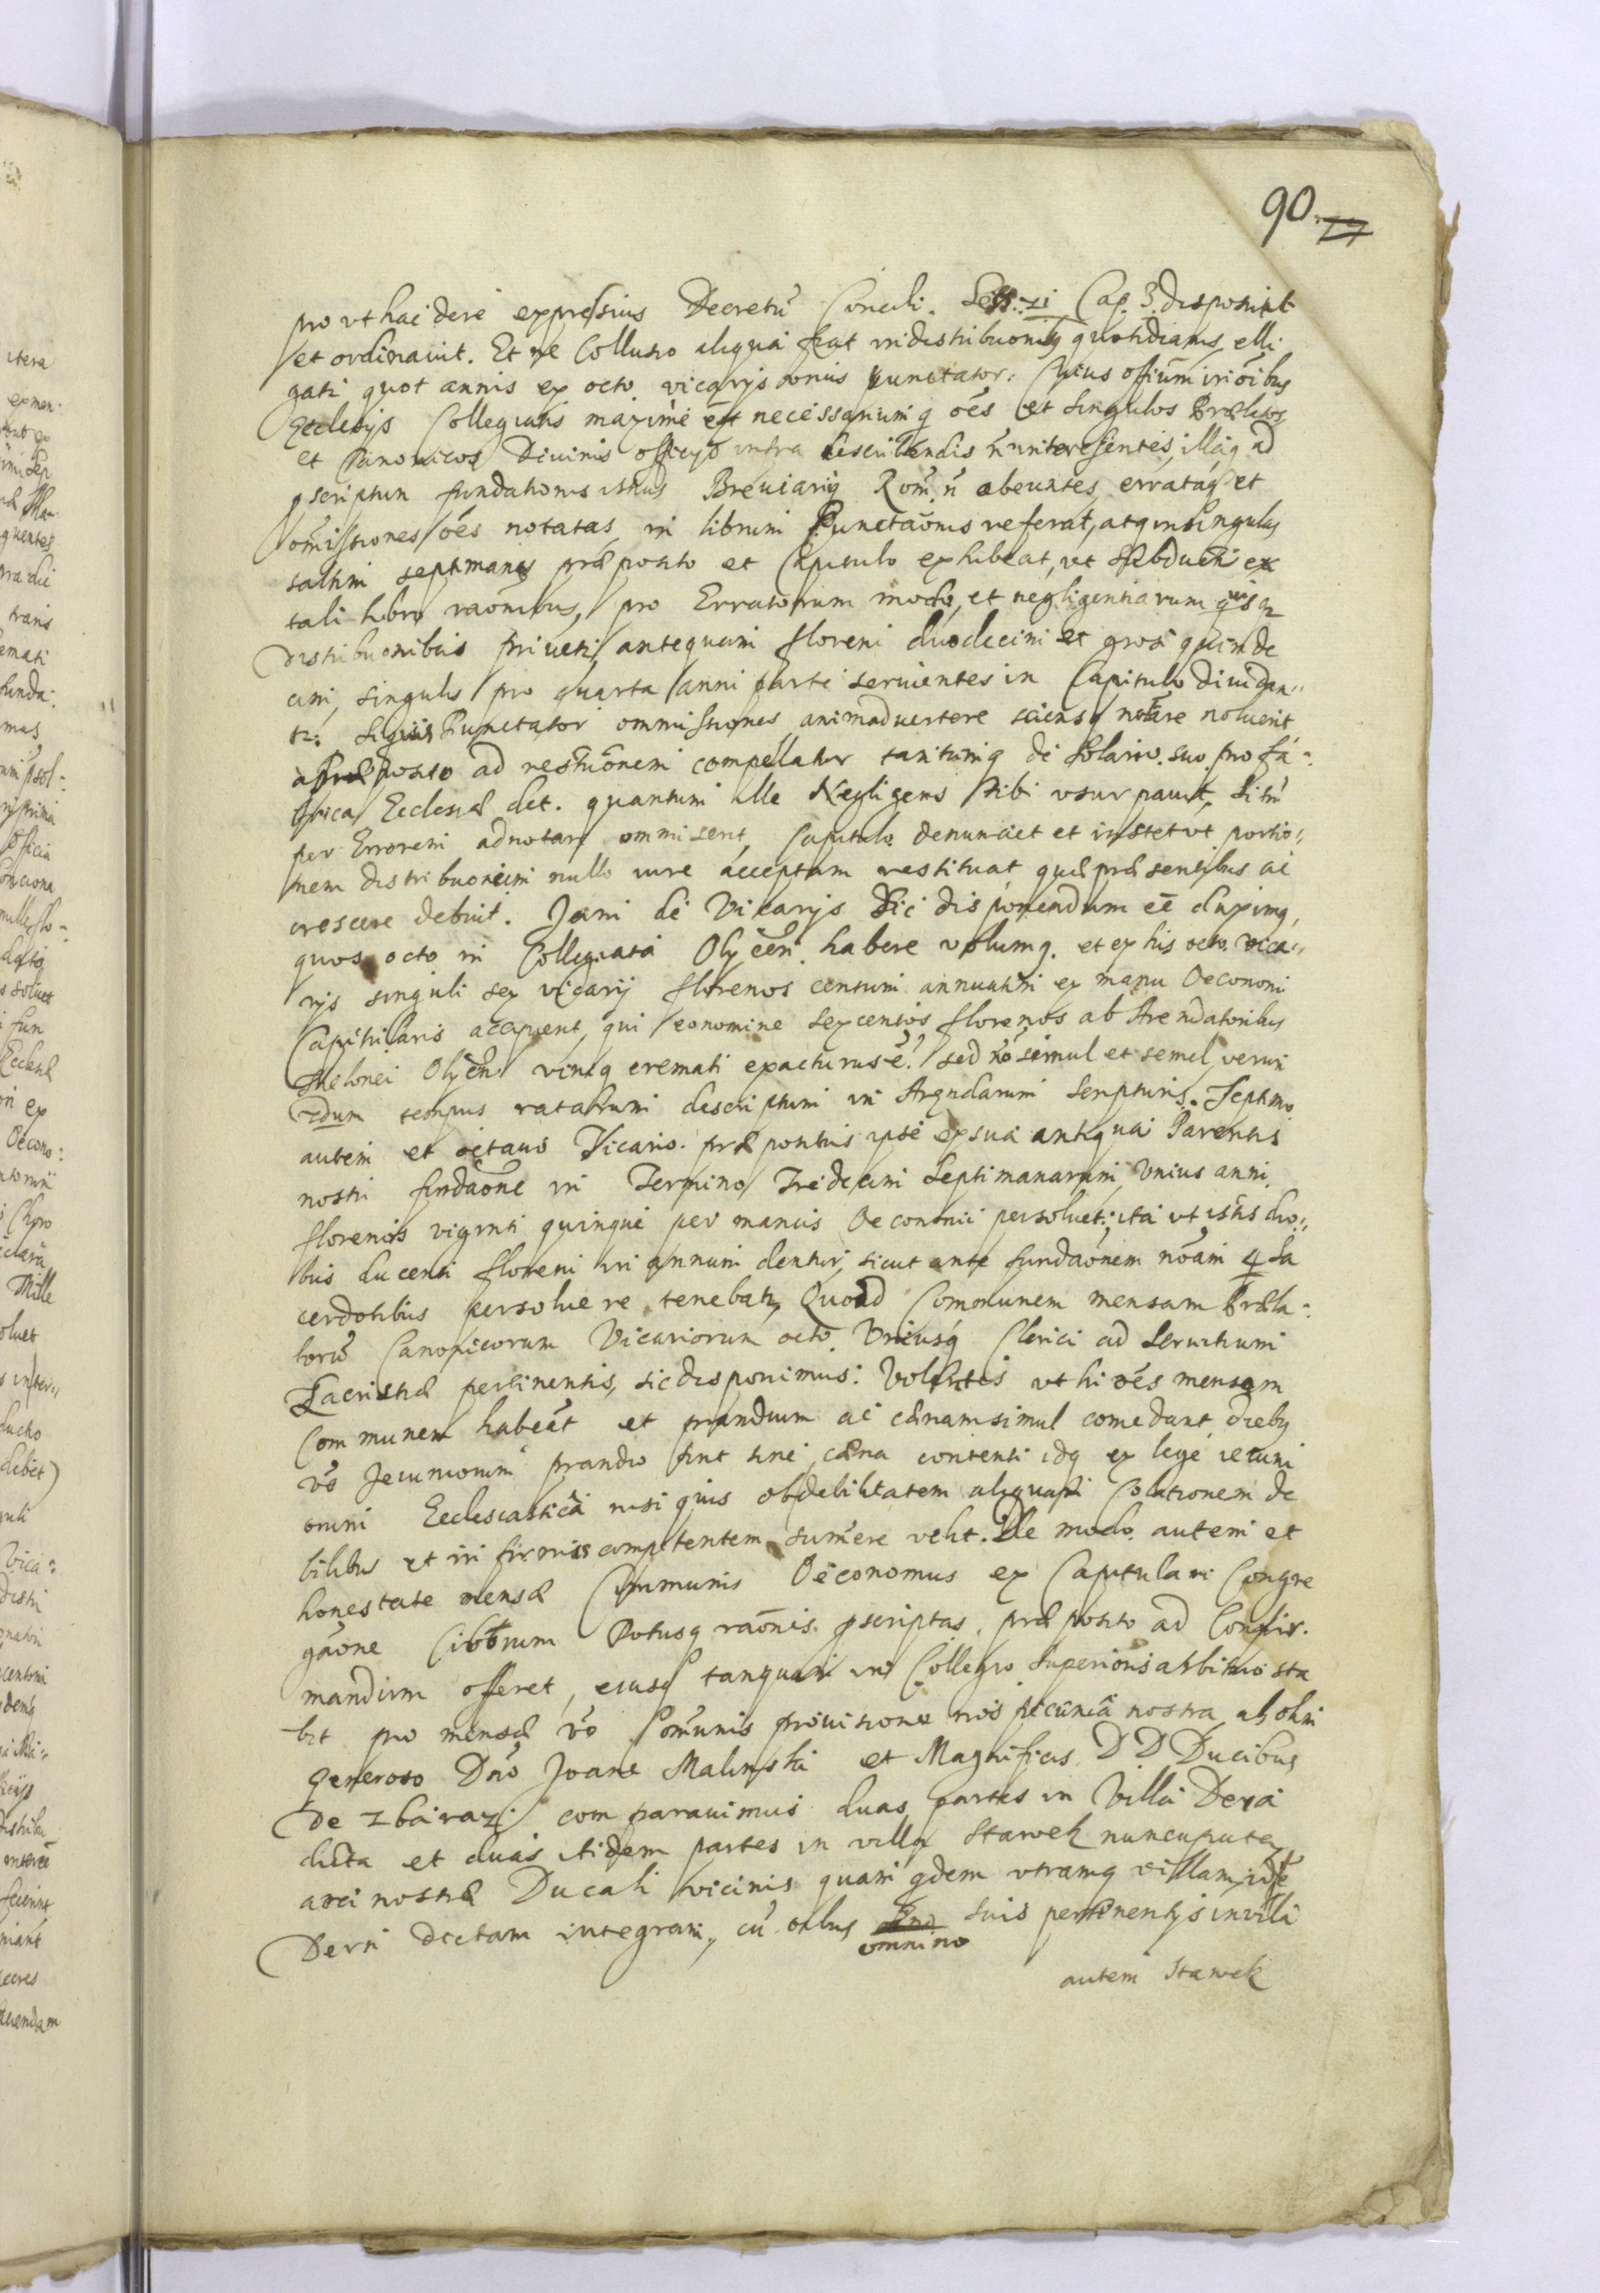 90. 77
pro vt hac de re expressius Decretū Concili. Sess: 21 Cap. 3. disposuit
et ordinauit. Et ne Collusio aliqua fiat in distribuonibq quotidianis, elli
gatr quot annis ex octo vicarijs vonus punctator: Cuius offiūm in oībus
Ecclesijs Collegiatis maxime est necessarium q oēs et singulos Prælatos
et Canonicos Diuinis officijs infra describendis n interessentes, illāq ad
pscriptum fundationis istius Breuiarij Rom. n obeuntes, errataq et
omissiones oēs notatas in librum Punctaōnis referat, atq in singulis
saltim septimanis præposito et Capitulo exhibeat, vt hebduati ex
tali libro raōnibus, pro Erratorum modo, et negligentiarum
distribuonibus priuetr, antequam floreni duodecim et grosi quinde
cim, singulis pro quarta anni parte seruientes in Capitulo diuidan„
tr: Siquis Punctator ommissiones animaduertere sciensq notare noluerit
a præposito ad restōnem compellatur tantumq de Solario suo pro fa„
brica Ecclesiæ det. quantum ille Negligens sibi vsurpauit, Si tn
per Errorem adnotare ommiserit, Capitulo denunciet et instet vt portio„
nem distribuonum nullo iure acceptam restituat quæ præsentibus ac
crescere debuit. Jam de Vicarijs Sic disponendum eē duximq,
quos octo in Collegiata Olycen. habere volumq. et ex his octo vica„
rijs singuli sex vicarij florenos centum annuatim ex manu Oeconomi
Capitularis accipient, qui eo nomine sexcentos florenos ab Arendatoribus
Thelonei Olycēn viniq cremati exacturus ē. sed nō simul et semel, verum
tempus ratarum descriptum in Arendarum Scripturis. Septimo
autem et octauo Vicario præpositus ipse ex sua antiqua Parentis
nostri fundaōne in Termino Tredecim Septimanarum, vnius anni
florenos viginti quinque per manus Oeconomi persoluet: ita vt istis duo„
bus ducenti floreni in annum dentur, sicut ante fundaōnem nrām 4 Sa
cerdotibus persoluere tenebatr, Quoad Communem mensam Præla„
torū Canonicorum Vicariorum octo Vniusq Clerici ad Seruitium
Sacristiæ pertinentis, sic disponimus: Volentes vt hi oēs mensam
Communem habeāt et prandium ac cænam simul comedant, diebq
vō Jeiuniorum prandio sint sine cæna contenti idq ex lege ieiuni
orum Ecclesiastica nisi quis ob debilitatem aliquam Colationem de
bilibus et infirmis competentem sumere velit. De modo autem et
honestate mensæ Communis Oeconomus ex Capitulari Congre
gaōne Ciborum Potusq raōnis pscriptas præposito ad Confir„
mandum offeret, eiusq tanquam in Collegio Superioris arbitrio sta
bit pro mensæ vō Comunis prouisione nos pecunia nostra ab olim
Generoso Dno Joane Malinski et Magnificis D D Ducibus
de Zbaraz comparauimus duas partes in Villa Derń
dicta et duas itidem partes in villa Stawek nuncupata
arci nostræ Ducali vicinis quam qdem vtramq villam, idē
Derń dictam integram, cū oībus omnino suis pertinentijs in villa
autem Stawek